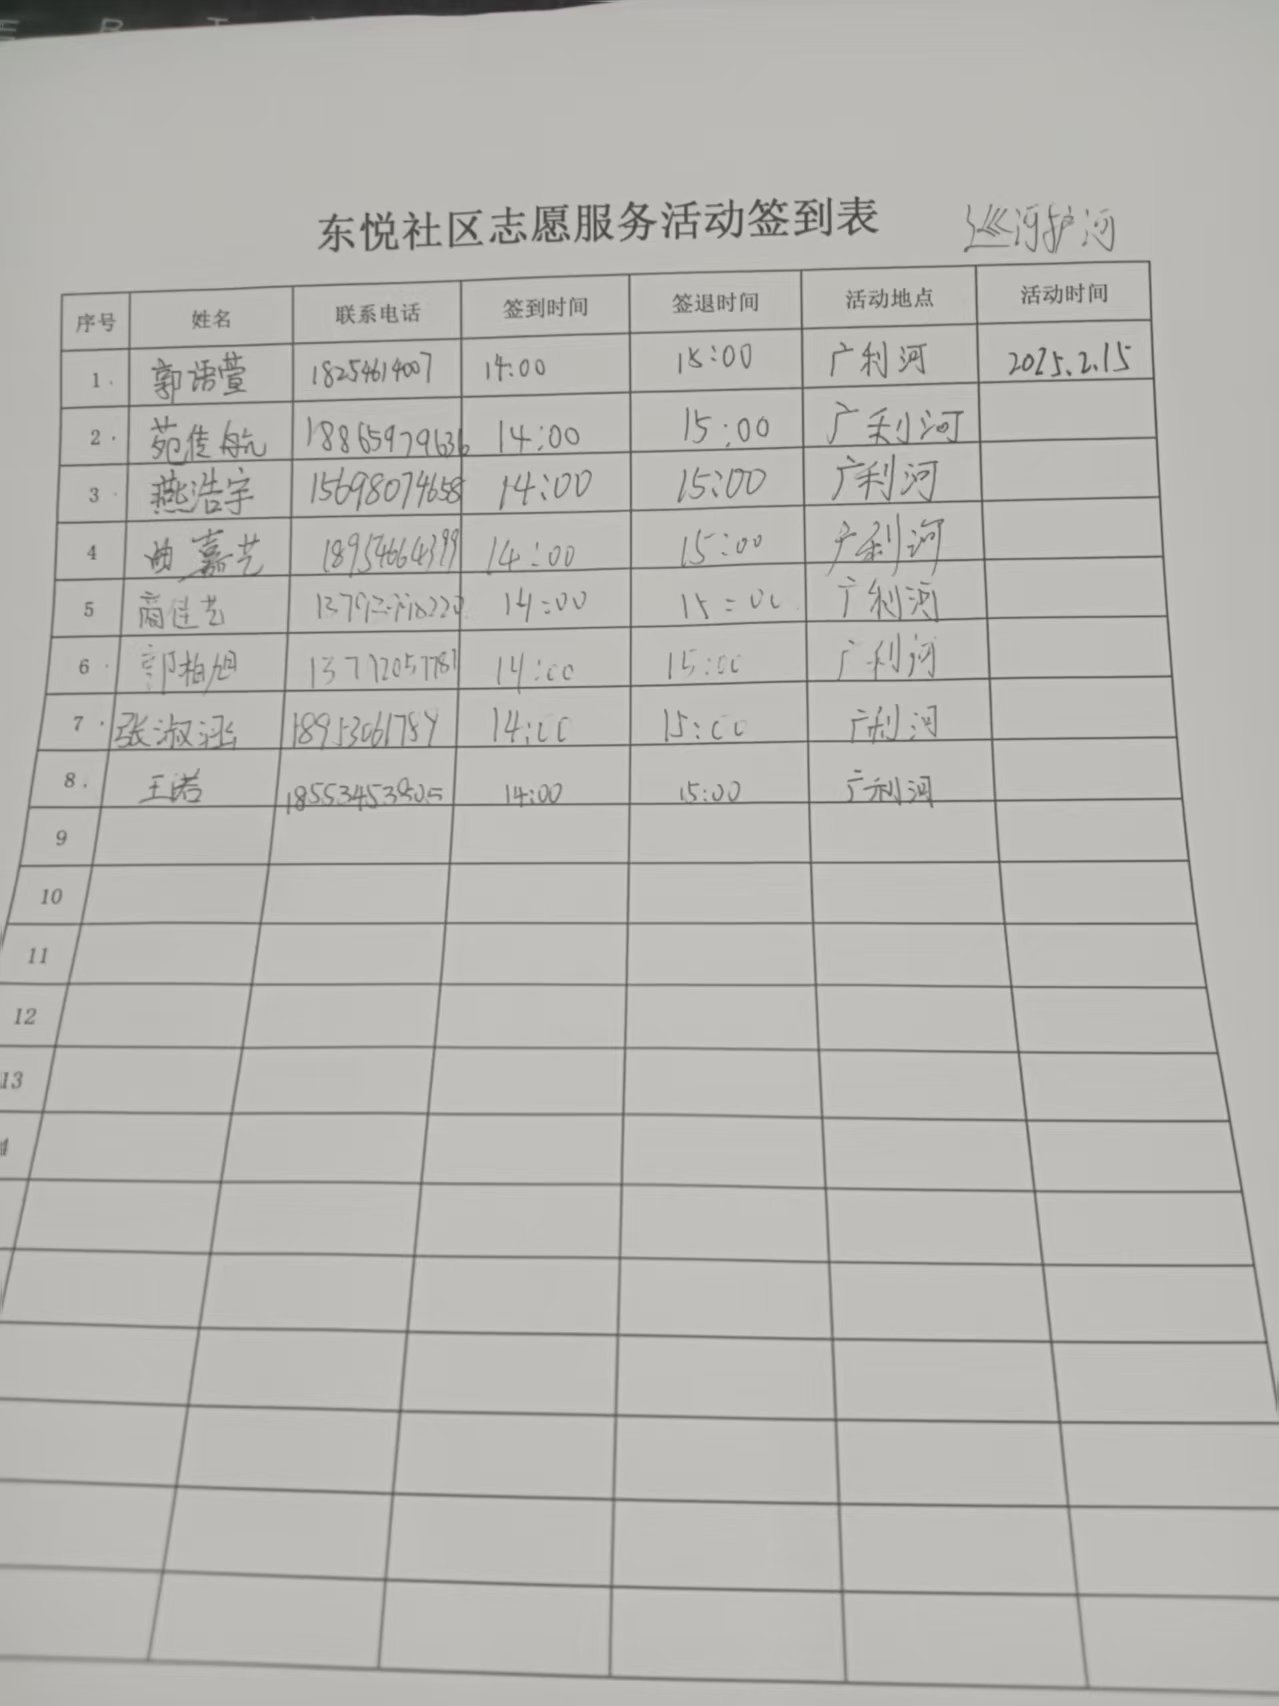 东悦社区志愿服务活动签到表 巡河护河
序号 姓名 联系电话 签到时间 签退时间 活动地点 活动时间
1 郭语萱 18254614007 14:00 15:00 广利河 2025.2.15
2 苑佳航 18865979636 14:00 15:00 广利河
3 燕浩宇 15698074658 14:00 15:00 广利河
4 曲嘉艺 18954664399 14:00 15:00 广利河
5 商佳艺 14:00 15:00 广利河
6 郭柏旭 14:00 15:00 广利河
7 张淑涵 18953061789 14:00 15:00 广利河
8 王诺 18553453905 14:00 15:00 广利河
9
10
11
12
13